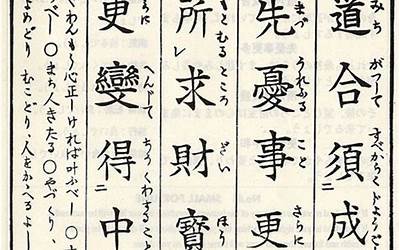 みち がつして すべからくじよう
道合須成
まづ うれふる こと さらに
先憂事更
とむるところ ざい ほ
所レ求財寶
さらに へんじて ちうくわすること
更變得二中
くわんもう心正しければ叶ふべし 〇
べし〇まち人きたる〇やづくり、
よめどり むことり、人をかゝへるよし